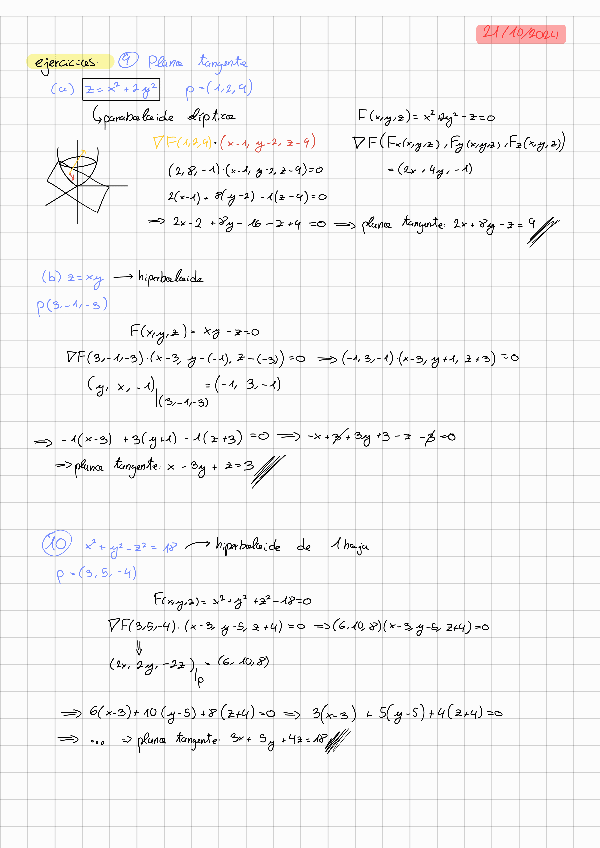 21/10/2024
ejercicios: 9 Plano tangente
(a) z = x² + 2y² p = (1, 2, 9)
↳ paraboloide elíptico
F(x,y,z) = x² + 2y² - z = 0
∇F(1,2,9)·(x-1, y-2, z-9)
∇F(Fx(x,y,z), Fy(x,y,z), Fz(x,y,z))
(2, 8, -1)·(x-1, y-2, z-9) = 0
= (2x, 4y, -1)
2(x-1) + 8(y-2) - 1(z-9) = 0
⇒ 2x - 2 + 8y - 16 - z + 9 = 0 ⇒ plano tangente: 2x + 8y - z = 9
(b) z = xy → hiperboloide
p(3, -1, -3)
F(x,y,z) = xy - z = 0
∇F(3,-1,-3)·(x-3, y-(-1), z-(-3)) = 0 ⇒ (-1, 3, -1)·(x-3, y+1, z+3) = 0
(y, x, -1)|(3,-1,-3) = (-1, 3, -1)
⇒ -1(x-3) + 3(y+1) - 1(z+3) = 0 ⇒ -x + 3 + 3y + 3 - z - 3 = 0
⇒ plano tangente: x - 3y + z = 3
10 x² + y² - z² = 18 → hiperboloide de 1 hoja
p = (3, 5, -4)
F(x,y,z) = x² + y² + z² - 18 = 0
∇F(3,5,-4)·(x-3, y-5, z+4) = 0 ⇒ (6, 10, 8)(x-3, y-5, z+4) = 0
⇓
(2x, 2y, -2z)|p = (6, 10, 8)
⇒ 6(x-3) + 10(y-5) + 8(z+4) = 0 ⇒ 3(x-3) + 5(y-5) + 4(z+4) = 0
⇒ ... ⇒ plano tangente: 3x + 5y + 4z = 18